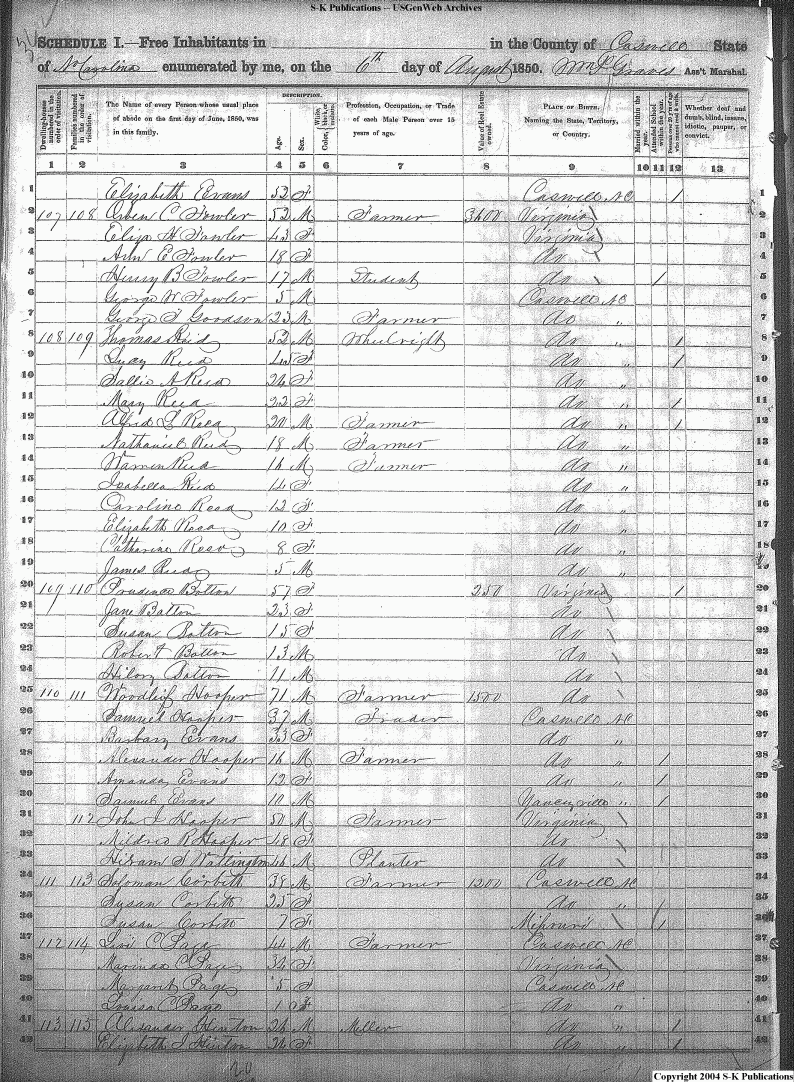 S-K Publications -- USGenWeb Archives
SCHEDULE I.—Free Inhabitants in in the County of Caswell State
of No Carolina enumerated by me, on the 6th day of August 1850. Wm P Graves Ass't Marshal.
Dwelling-houses numbered in the order of visitation.
Families numbered in the order of visitation.
The Name of every Person whose usual place of abode on the first day of June, 1850, was in this family.
DESCRIPTION.
Age.
Sex.
Color, White, black, or mulatto.
Profession, Occupation, or Trade of each Male Person over 15 years of age.
Value of Real Estate owned.
PLACE OF BIRTH.
Naming the State, Territory, or Country.
Married within the year.
Attended School within the year.
Persons over 20 y'rs of age who cannot read & write.
Whether deaf and dumb, blind, insane, idiotic, pauper, or convict.
1 2 3 4 5 6 7 8 9 10 11 12 13
1 Elizabeth Evans 52 F Caswell NC / 1
2 107 108 C Fowler 52 M Farmer 3600 Virginia 2
3 Eliza H Fowler 43 F Virginia 3
4 Ann E Fowler 18 F do 4
5 Henry B Fowler 17 M Student do / 5
6 George W Fowler 5 M Caswell NC 6
7 George Goodson 23 M Farmer do " 7
8 108 109 Thomas Reid 52 M Wheelright do " / 8
9 Lucy Reid F do " / 9
10 Sallie A Reid 24 F do " 10
11 Mary Reid 22 F do " / 11
12 Alfred L Read 20 M Farmer do " / 12
13 Nathaniel Reid 18 M Farmer do " 13
14 Warren Reid 16 M Farmer do " 14
15 Isabella Reid 14 F do " 15
16 Caroline Read 12 F do " 16
17 Elizabeth Read 10 F do " 17
18 Catharine Read 8 F do " 18
19 James Reid 5 M do " 19
20 109 110 Prudence Botton 57 F 250 Virginia / 20
21 Jane Batton 23 F do 21
22 Susan Botton 15 F do 22
23 Robert Botton 13 M do 23
24 Botton 11 M do 24
25 110 111 Woodlif Hooper 71 M Farmer 1500 do 25
26 Samuel Hooper 37 M Trader Caswell NC 26
27 Barbary Evans 33 F do " 27
28 Alexander Hooper 16 M Farmer do " / 28
29 Amanda Evans 12 F do " / 29
30 Samuel Evans 10 M Yanceyville " / 30
31 112 John Hooper 50 M Farmer Virginia 31
32 Mildred R Hooper 48 F do 32
33 Hiram S Wattington 46 M Planter do 33
34 111 113 Soloman Corbett 38 M Farmer 1200 Caswell NC 34
35 Susan Corbett 25 F do " / 35
36 Susan Corbett 7 F Missouri / 36
37 112 114 Levi C Page 44 M Farmer Caswell NC 37
38 C Page 32 F Virginia 38
39 Margaret Page 5 F Caswell NC 39
40 Louisa C Page 1 F do " 40
41 113 115 Alexander Hinton 26 M Miller do " / 41
42 Elizabeth J Hinton 36 F do " / 42
20
Copyright 2004 S-K Publications